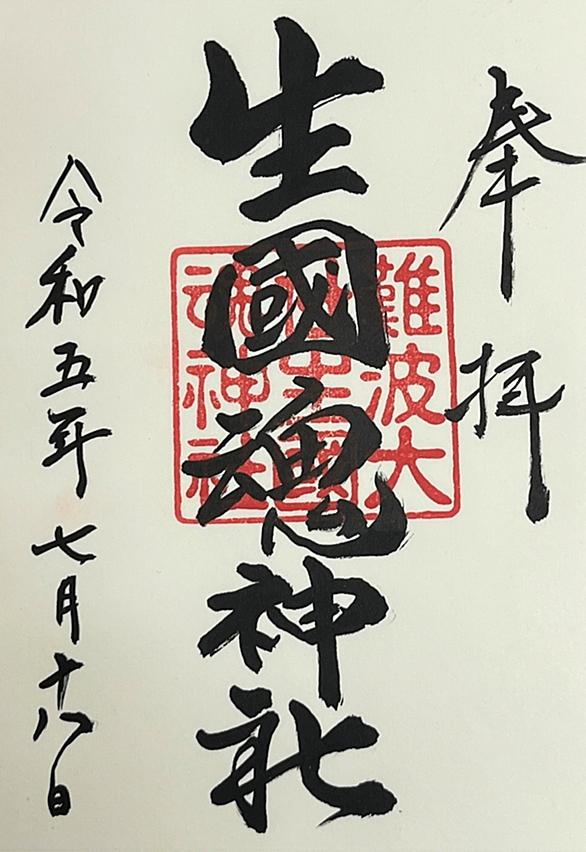 奉拝
生國魂神社
難波大
社生國
魂神社
令和五年七月十八日